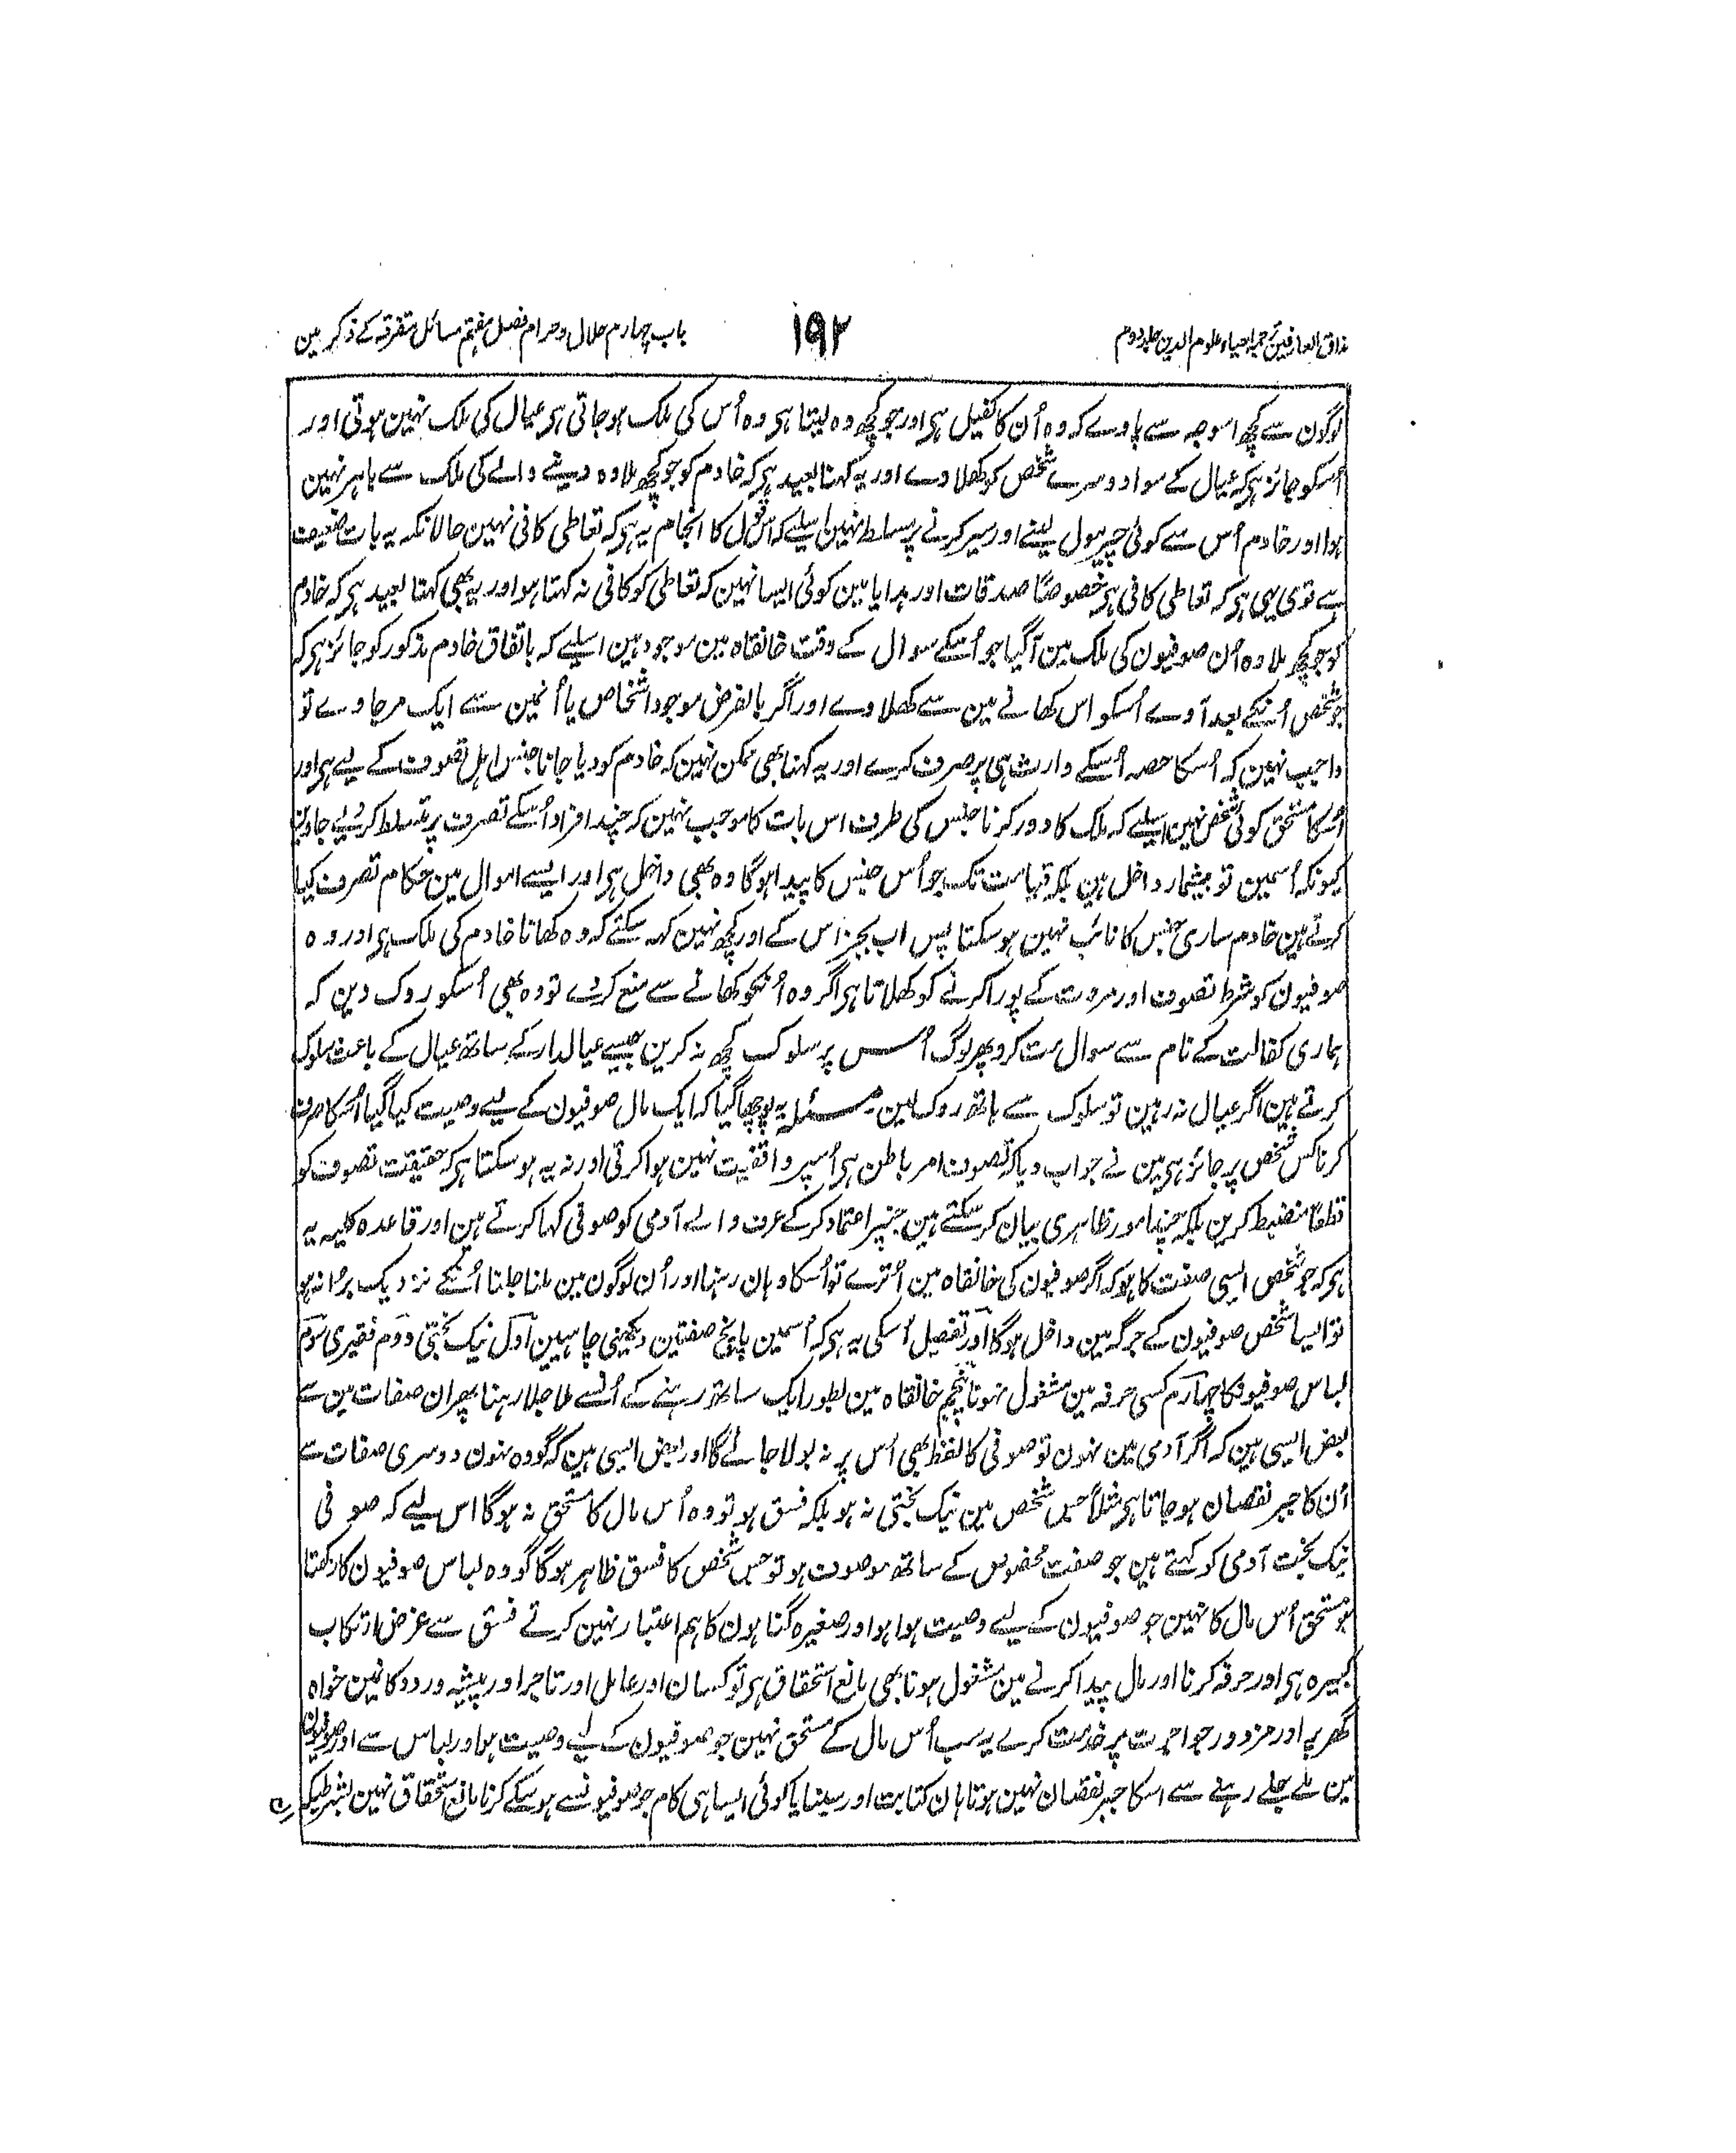 مذاق العارفین ترجمہ احیاء علوم الدین جلد دوم
۱۹۲
باب چہارم حلال و حرام فصل ہفتم مسائل متفرقہ کے ذکر مین
لوگون سے کچھ اسوجہ سے پاوے کہ وہ اُن کا کفیل ہی اور جو کچھ وہ لیتا ہی وہ اُس کی ملک ہو جاتی ہی عیال کی ملک نہین ہوتی اور
اُسکو جائز ہی کہ عیال کے سوا دوسرے شخص کو کھلاوے اور یہ کہنا بعید ہی کہ خادم کو جو کچھ ملا وہ دینے والے کی ملک سے باہر نہین
ہوا اور خادم اُس سے کوئی چیز مول لینے اور سیر کرنے پر مسلط نہین اسلیے کہ اس قول کا انجام یہ ہی کہ تعاطی کافی نہین حالانکہ یہ بات ضعیف
ہے قوی یہی ہی کہ تعاطی کافی ہی خصوصًا صدقات اور ہدایا مین کوئی ایسا نہین کہ تعاطی کو کافی نہ کہتا ہو اور یہ بھی کہنا بعید ہی کہ خادم
کو جو کچھ ملا وہ اُن صوفیون کی ملک مین آگیا جو اُسکے سوال کے وقت خانقاہ مین موجود ہین اسلیے کہ باتفاق خادم مذکور کو جائز ہی کہ
جو شخص اُنکے بعد آوے اُسکو اس کھانے مین سے کھلاوے اور اگر بالفرض موجود اشخاص یا اُنمین سے ایک مر جاوے تو
واجب نہین کہ اُسکا حصہ اُسکے وارث ہی پر صرف کرے اور یہ کہنا بھی ممکن نہین کہ خادم کو دیا جانا جنس اہل تصوف کے لیے ہی اور
اُسکا مستحق کوئی شخص نہین اسلیے کہ ملک کا دور کرنا جنس کی طرف اس بات کا موجب نہین کہ چند افراد اُسکے تصرف پر مسلط کر دیے جاوین
کیونکہ اُسمین تو بیشمار داخل ہین بلکہ قیامت تک جو اُس جنس کا پیدا ہوگا وہ بھی داخل ہی اور ایسے اموال مین حکام تصرف کیا
کرتے ہین خادم ساری جنس کا نائب نہین ہو سکتا پس اب بجز اس کے اور کچھ نہین کہہ سکتے کہ وہ کھانا خادم کی ملک ہی اور وہ
صوفیون کو شرط تصوف اور مروت کے پورا کرنے کو کھلاتا ہی اگر وہ اُنکو کھانے سے منع کردے تو وہ بھی اُسکو روک دین کہ
ہماری کفالت کے نام سے سوال مت کرو پھر لوگ اُس پر سلوک کچھ نہ کرین جیسے عیالدار کے ساتھ عیال کے باعث سلوک
کرتے ہین اگر عیال نہ رہین تو سلوک سے ہاتھ روک لین۔ مسئلہ یہ پوچھا گیا کہ ایک مال صوفیون کے لیے وصیت کیا گیا اُسکا صرف
کرنا کس شخص پر جائز ہی مین نے جواب دیا کہ تصوف امر باطن ہی اُسپر واقفیت نہین ہوا کرتی اور نہ یہ ہو سکتا ہی کہ حقیقت تصوف کو
قطعًا منضبط کرین بلکہ چند امور ظاہری بیان کر سکتے ہین جنپر اعتماد کر کے عرف والے آدمی کو صوفی کہا کرتے ہین اور قاعدہ کلیہ یہ
ہی کہ جو شخص ایسی صفت کا ہو کہ اگر صوفیون کی خانقاہ مین اُترے تو اُسکا وہان رہنا اور اُن لوگون مین ملنا جلنا اُنکے نزدیک برُا نہ ہو
تو ایسا شخص صوفیون کے جرگہ مین داخل ہوگا اور تفصیل اُسکی یہ ہی کہ اُسمین پانچ صفتین دیکھنی چاہیین اوّل نیک بختی دوم فقیری سوم
لباس صوفیونکا چہارم کسی حرفہ مین مشغول نہونا پنجم خانقاہ مین بطور ایک ساتھ رہنے کے اُنسے ملا جلا رہنا پھر ان صفات مین سے
بعض ایسی ہین کہ اگر آدمی مین نہون تو صوفی کا لفظ بھی اُس پر نہ بولا جائےگا اور بعض ایسی ہین کہ گو وہ نہون دوسری صفات سے
اُن کا جبر نقصان ہو جاتا ہی مثلًا جس شخص مین نیک بختی نہ ہو بلکہ فسق ہو تو وہ اُس مال کا مستحق نہ ہوگا اس لیے کہ صوفی
نیک بخت آدمی کو کہتے ہین جو صفت مخصوص کے ساتھ موصوف ہو تو جس شخص کا فسق ظاہر ہوگا گو وہ لباس صوفیون کا رکھتا
ہو مستحق اُس مال کا نہین جو صوفیون کے لیے وصیت ہوا ہو اور صغیرہ گناہون کا ہم اعتبار نہین کرتے فسق سے غرض ارتکاب
کبیرہ ہی اور حرفہ کرنا اور مال پیدا کرنے مین مشغول ہونا بھی مانع استحقاق ہی تو کسان اور عامل اور تاجر اور پیشہ ور دوکانین خواہ
گھر پر اور مزدور جو اجرت پر خدمت کرے یہ سب اُس مال کے مستحق نہین جو صوفیون کے لیے وصیت ہو اور لباس سے اور صوفیون
مین ملے جلے رہنے سے اسکا جبر نقصان نہین ہوتا ہان کتابت اور سینا یا کوئی ایسا ہی کام جو صوفیونسے ہو سکے کرنا مانع استحقاق نہین بشرطیکہ